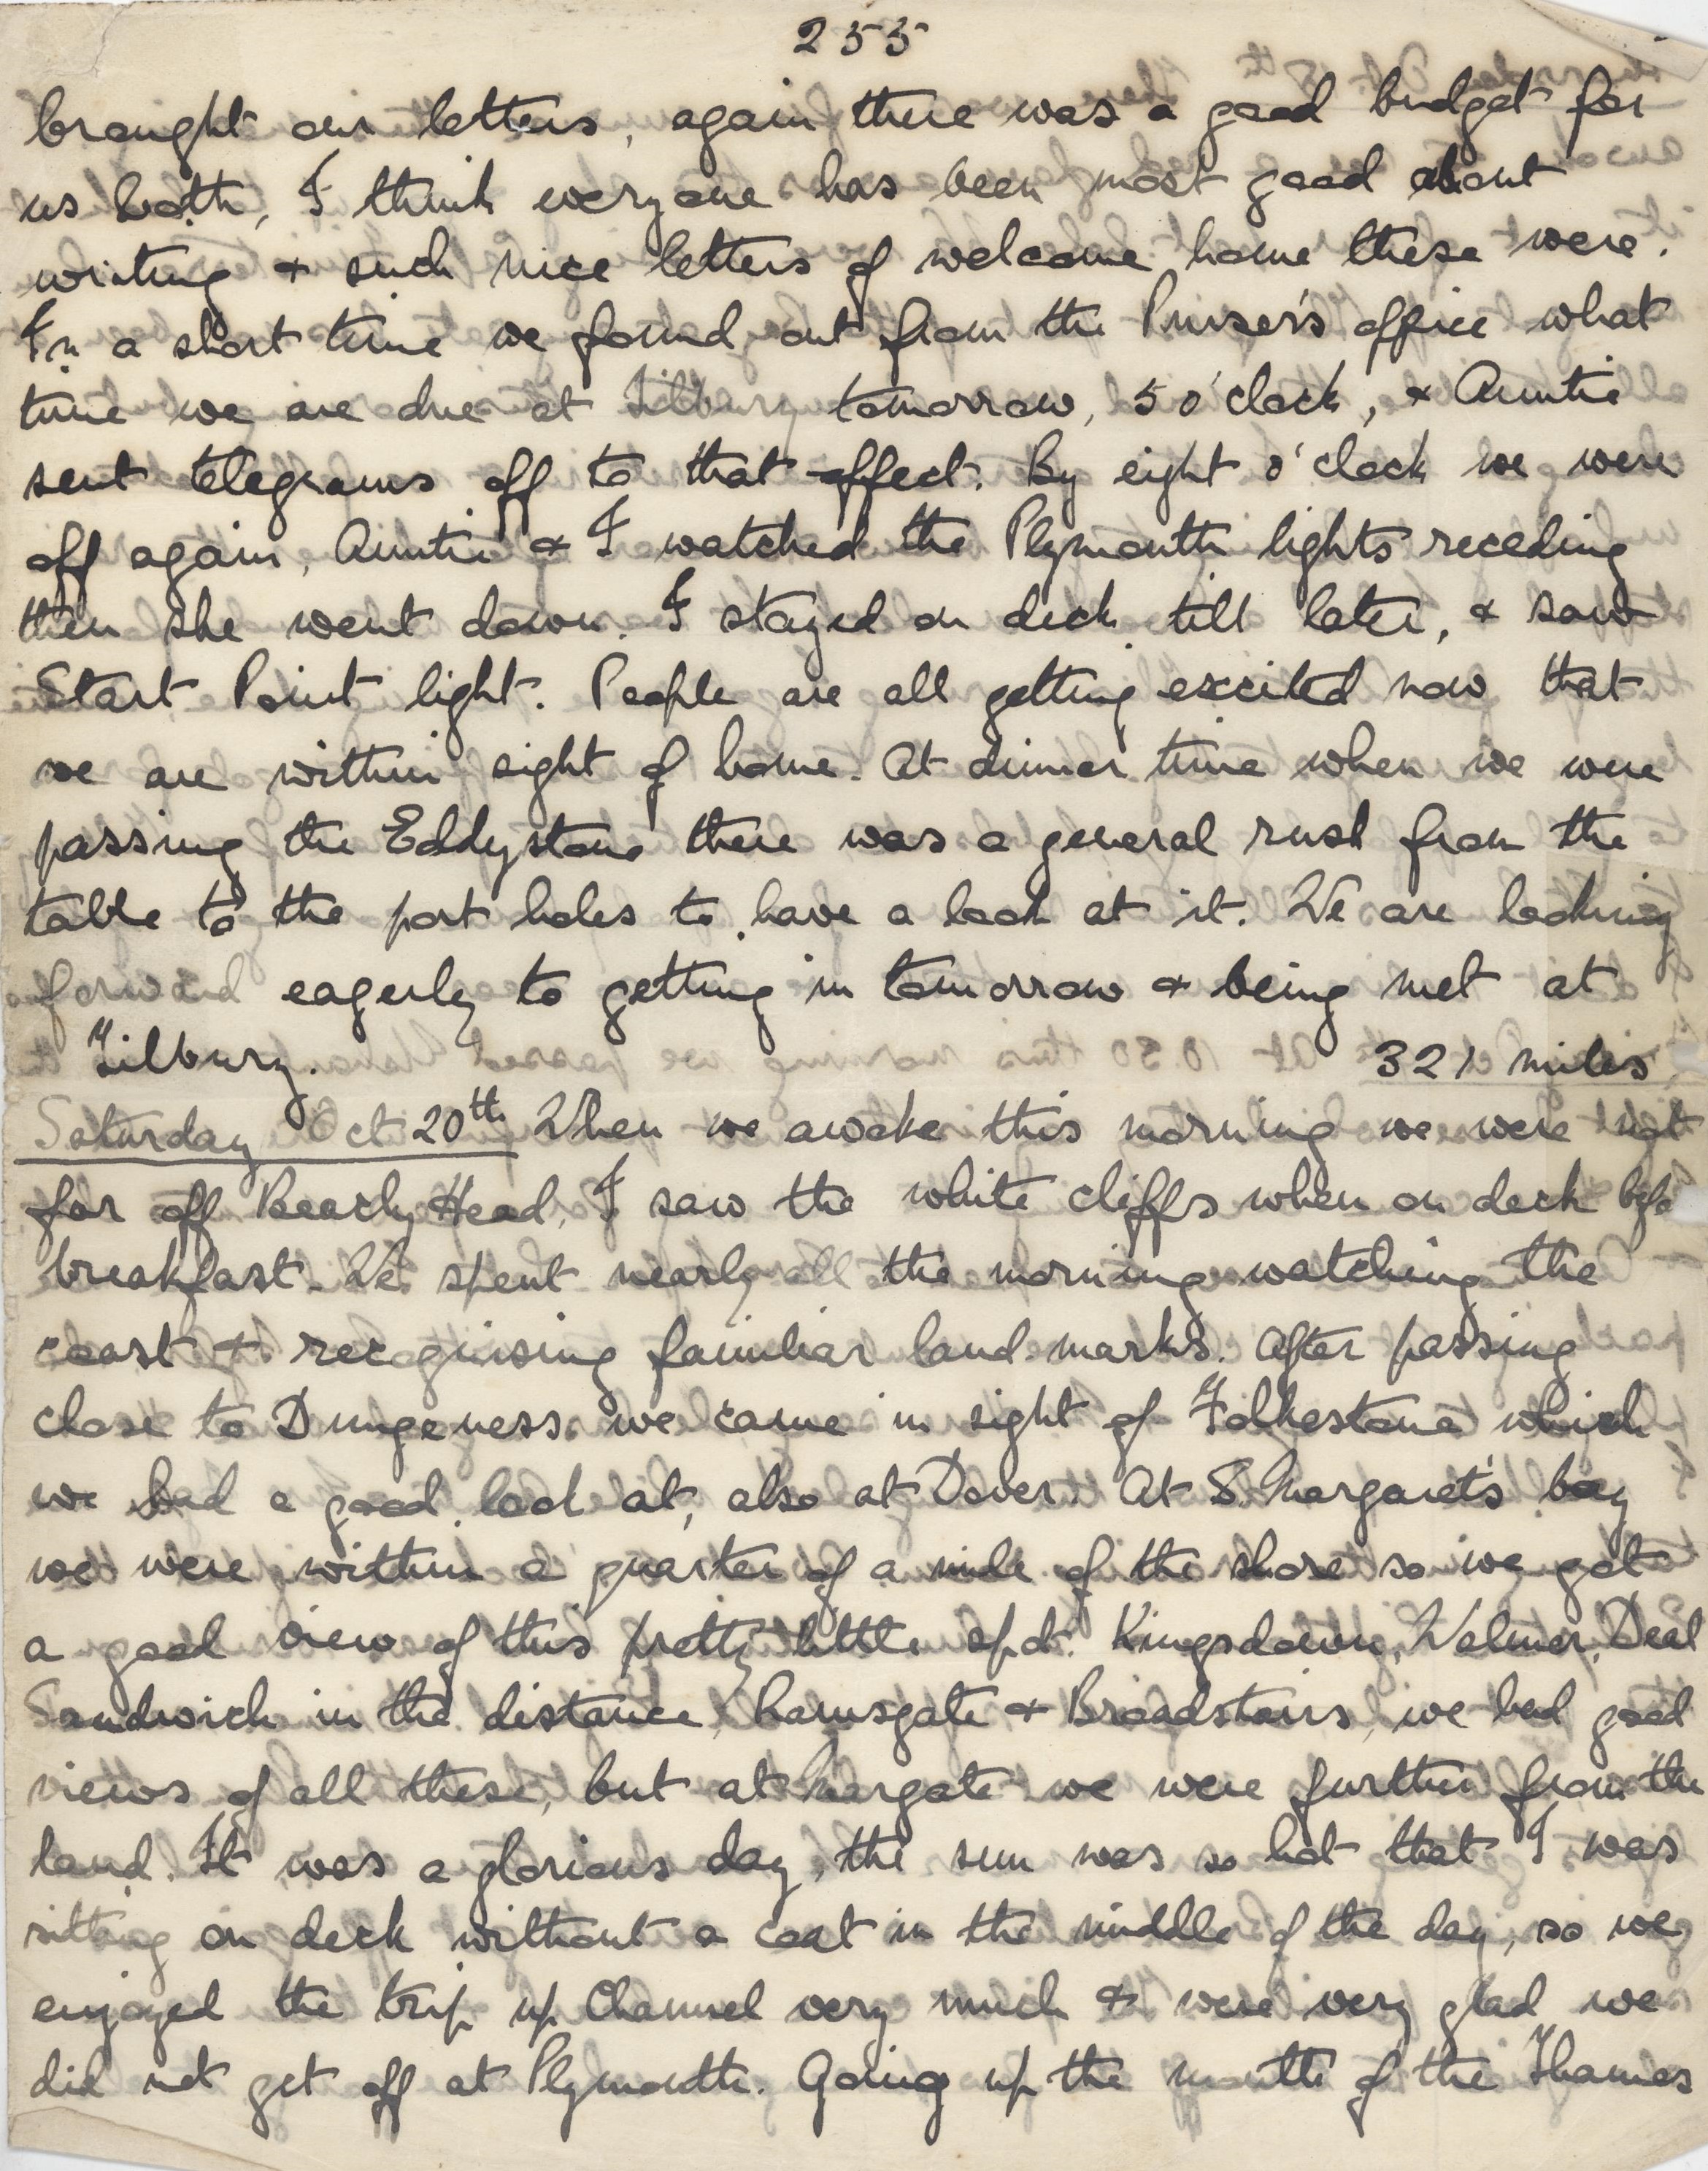 255
brought our letters, again there was a good budget for
us both, I think everyone has been most good about
writing & such nice letters of welcome home these were.
In a short time we found out from the Purser's office what
time we are due at Tilbury tomorrow, 5 o'clock, & Auntie
sent telegrams off to that effect. By eight o'clock we were
off again, Auntie & I watched the Plymouth lights receding
then she went down. I stayed on deck till later, & saw
Start Point light. People are all getting excited now that
we are within sight of home. At dinner time when we were
passing the Eddystone there was a general rush from the
table to the port holes to have a look at it. We are looking
forward eagerly to getting in tomorrow & being met at
Tilbury. 321 miles.
Saturday Oct 20th When we awoke this morning we were not
far off Beachy Head, I saw the white cliffs when on deck befo
breakfast. We spent nearly all the morning watching the
coast & recognising familiar land marks. After passing
close to Dungeness we came in sight of Folkestone which
we had a good look at, also at Dover. At S. Margaret's bay
we were within a quarter of a mile of the shore so we got
a good view of this pretty little spot. Kingsdown, Walmer, Deal
Sandwich in the distance, Ramsgate & Broadstairs, we had good
views of all these, but at Margate we were further from the
land. It was a glorious day, the sun was so hot that I was
sitting on deck without a coat in the middle of the day, so we
enjoyed the trip up Channel very much & were very glad we
did not get off at Plymouth. Going up the mouth of the Thames